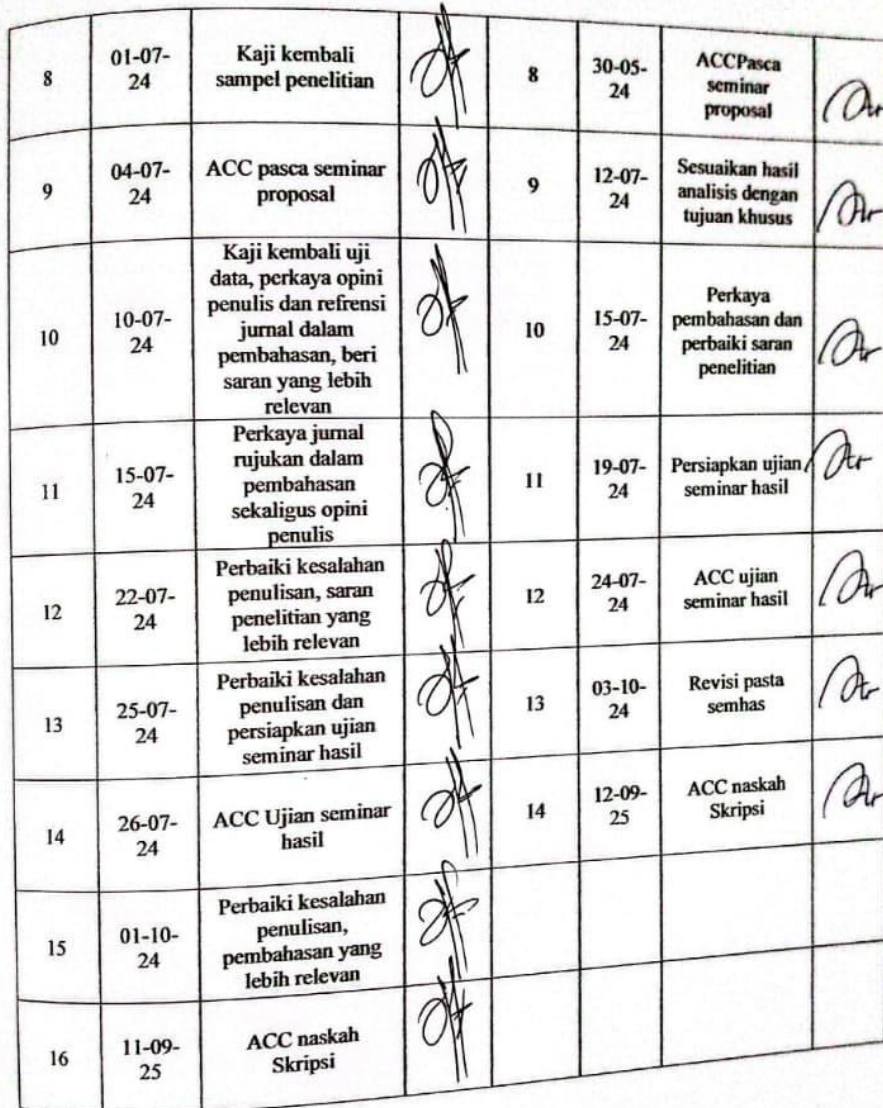 8
01-07-
24
Kaji kembali
sampel penelitian
8
30-05-
24
ACCPasca
seminar
proposal
9
04-07-
24
ACC pasca seminar
proposal
9
12-07-
24
Sesuaikan hasil
analisis dengan
tujuan khusus
10
10-07-
24
Kaji kembali uji
data, perkaya opini
penulis dan refrensi
jurnal dalam
pembahasan, beri
saran yang lebih
relevan
10
15-07-
24
Perkaya
pembahasan dan
perbaiki saran
penelitian
11
15-07-
24
Perkaya jurnal
rujukan dalam
pembahasan
sekaligus opini
penulis
11
19-07-
24
Persiapkan ujian
seminar hasil
12
22-07-
24
Perbaiki kesalahan
penulisan, saran
penelitian yang
lebih relevan
12
24-07-
24
ACC ujian
seminar hasil
13
25-07-
24
Perbaiki kesalahan
penulisan dan
persiapkan ujian
seminar hasil
13
03-10-
24
Revisi pasta
semhas
14
26-07-
24
ACC Ujian seminar
hasil
14
12-09-
25
ACC naskah
Skripsi
15
01-10-
24
Perbaiki kesalahan
penulisan,
pembahasan yang
lebih relevan
16
11-09-
25
ACC naskah
Skripsi